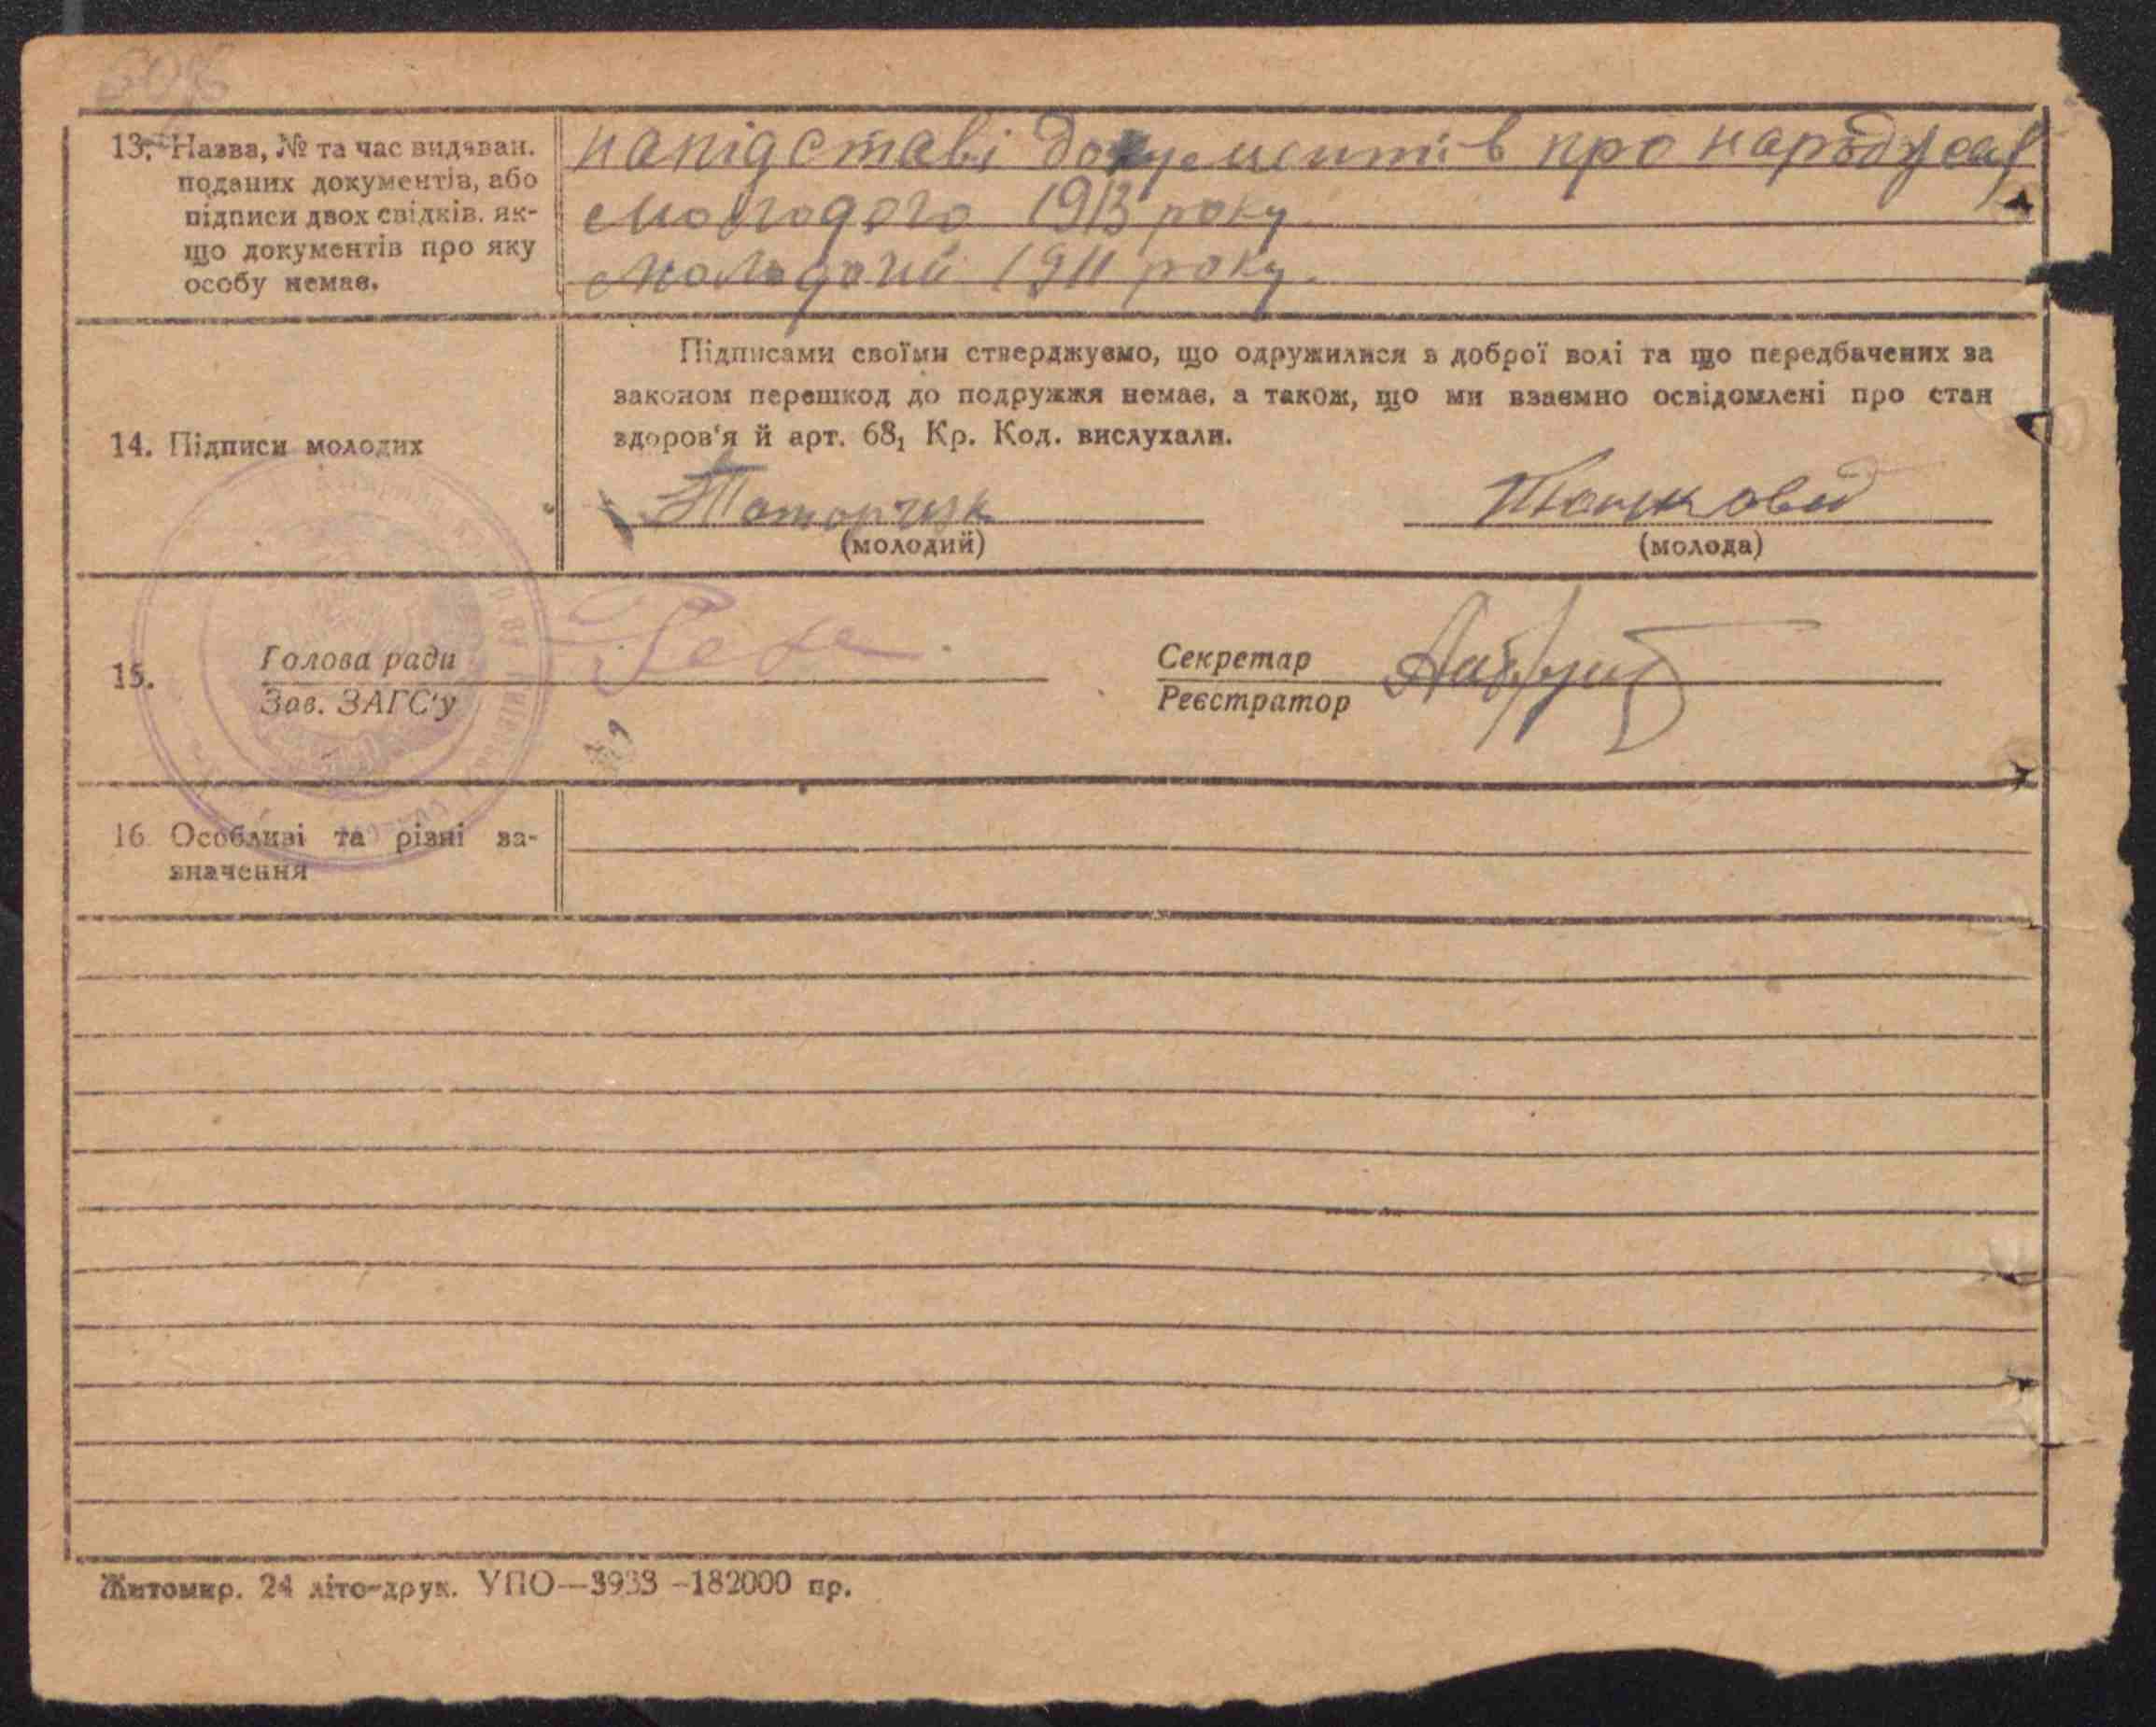 13. Назва, № та час видаван.
поданих документів, або
підписи двох свідків, як-
що документів про яку
особу немає.
напідставі документів про народжеа
молодого 1913 року
молодой 1911 року.
14. Підписи молодих
Підписами своїми стверджуємо, що одружилися з доброї волі та що передбачених за
законом перешкод до подружжя немає, а також, що ми взаємно освідомлені про стан
здоров'я й арт. 68₁ Кр. Код. вислухали.
(молодий)
(молода)
15.
Голова ради
Зав. ЗАГС'у
Секретар
Реєстратор
16 Особливі та різні за-
значення
Житомир. 24 літо-друк. УПО—3933 -182000 пр.